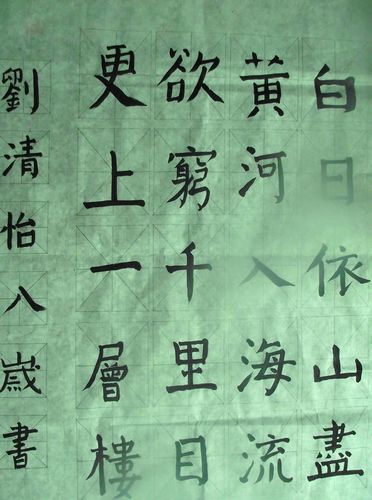 白日依山盡
黃河入海流
欲窮千里目
更上一層樓
劉清怡八歲書